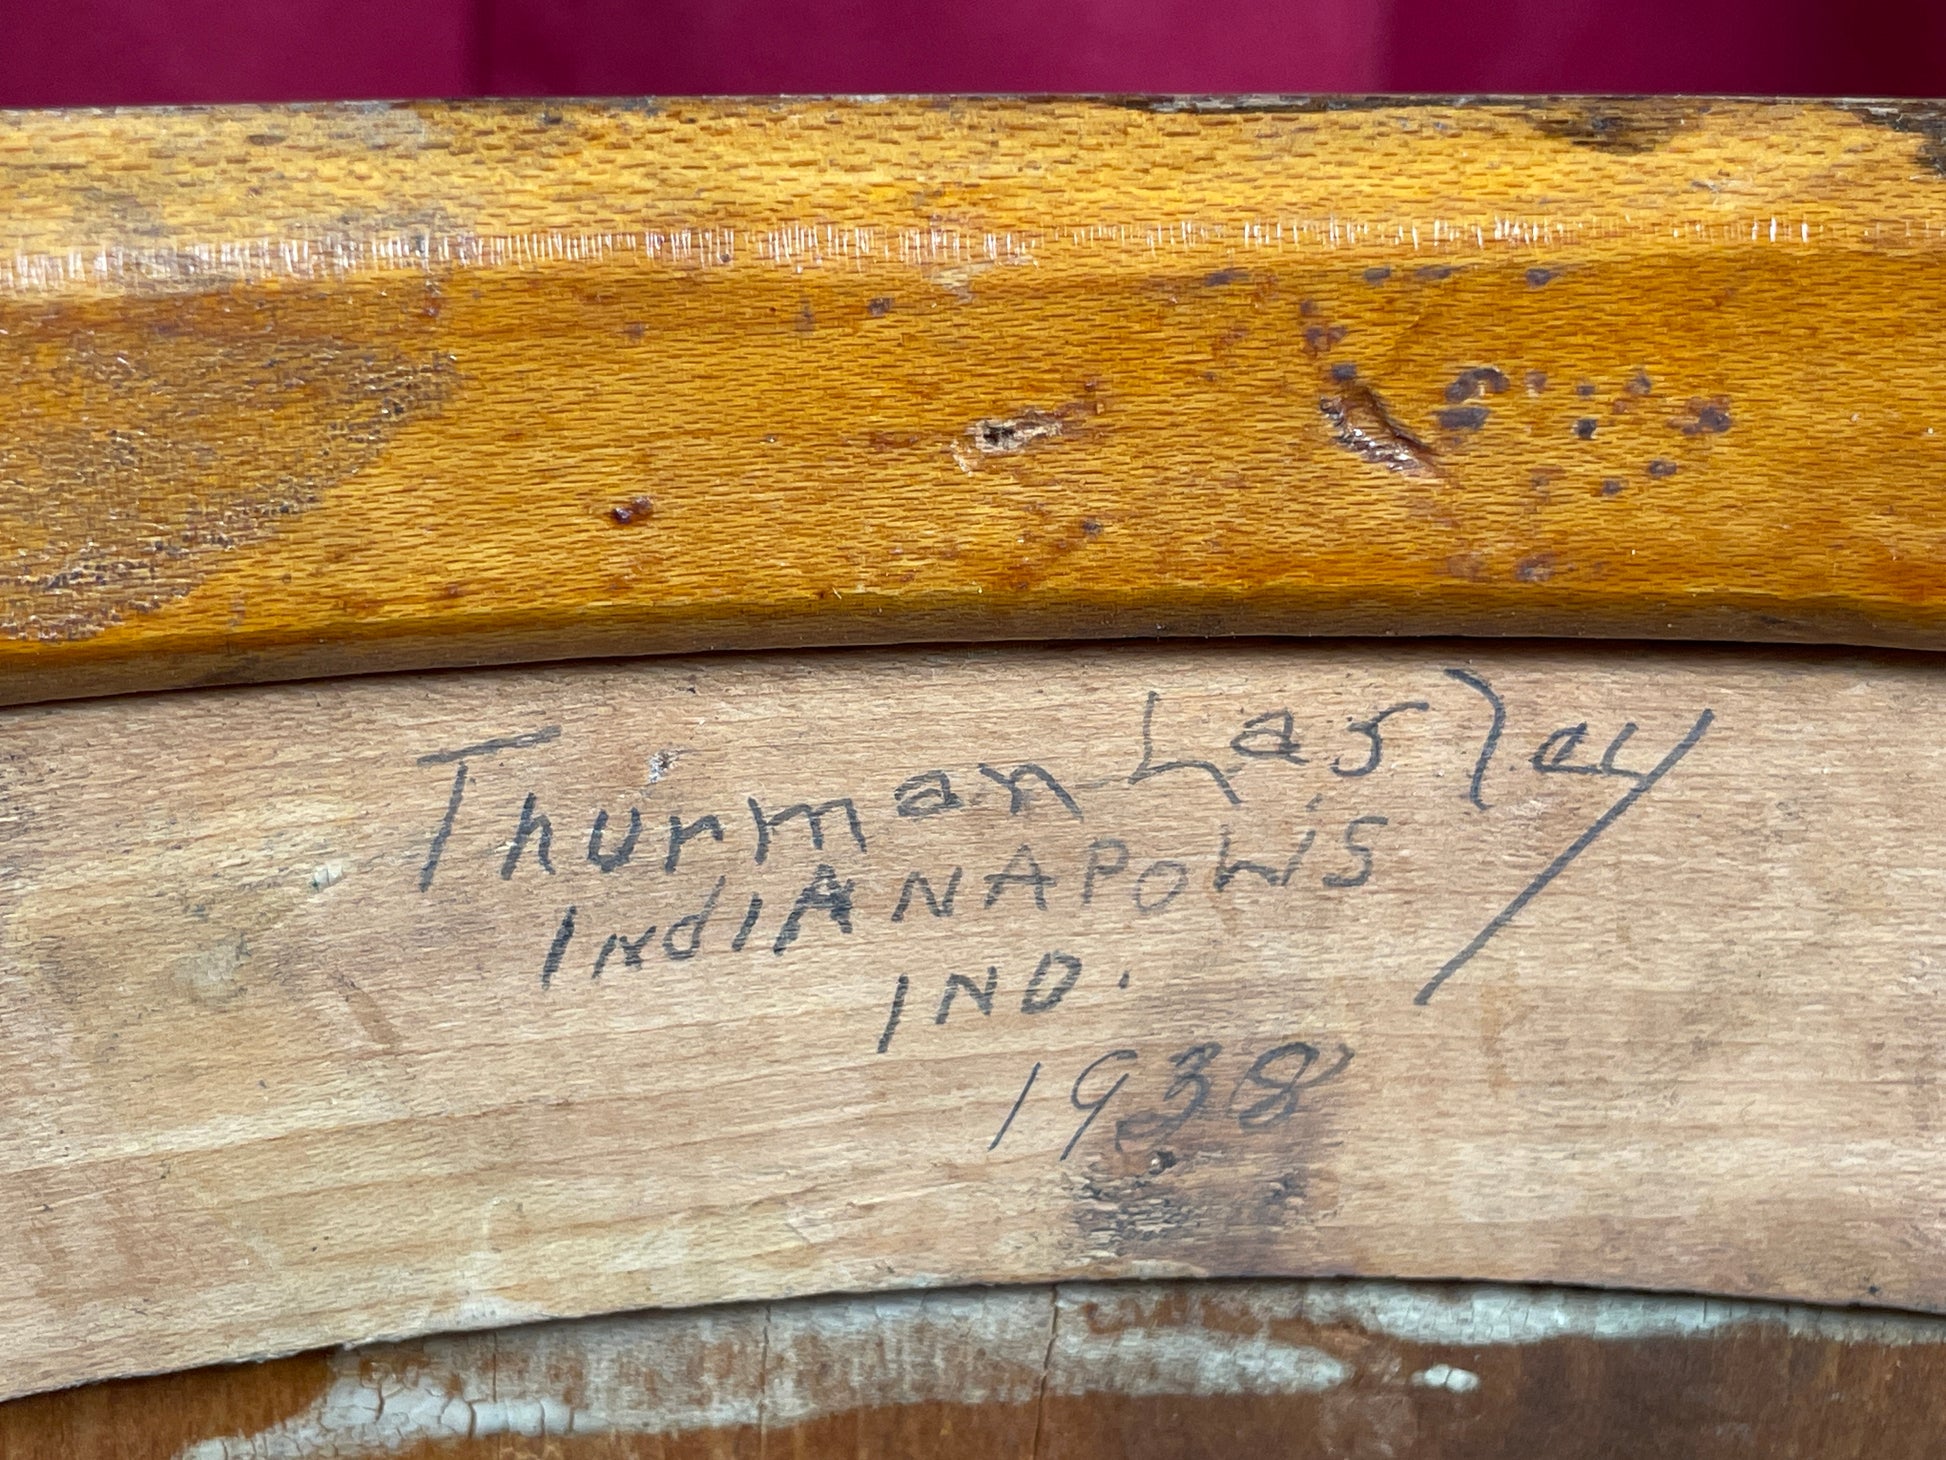 Thurman Lasley
INdIANAPOLIS
IND.
1938